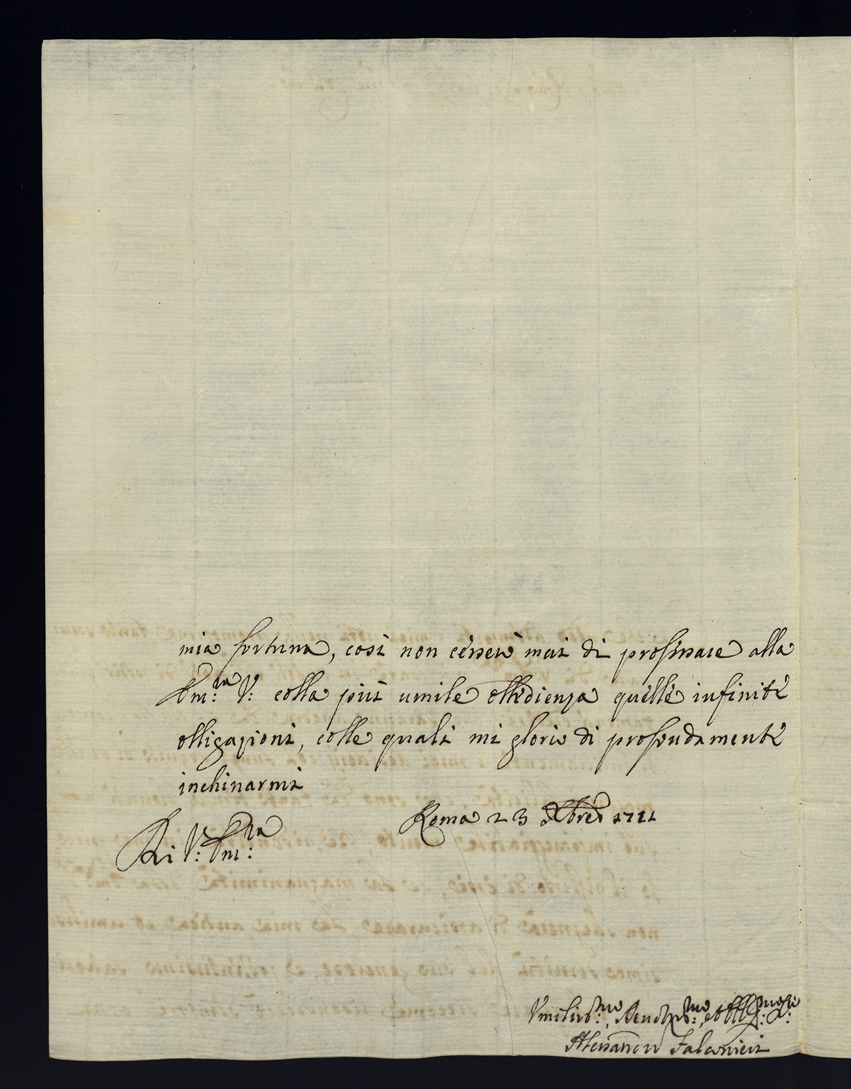 mia fortuna, così non cesserò mai di professare alla
Em:za V: colla più umile obbedienza quelle infinite
obbligazioni, colle quali mi glorio di profondamente
inchinarmi
Di V: Em:za
Roma 23 Xbre 1711
Umiliss:mo, Devotiss:mo, et Obblig:mo Se:re
Alessandro Falconieri